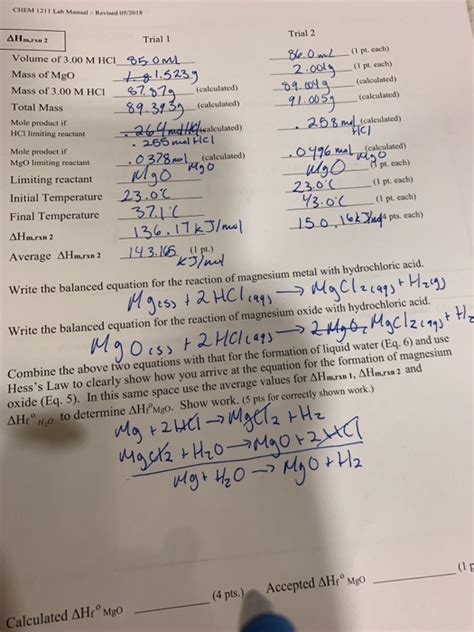 CHEM 1211 Lab Manual – Revised 05/2018
ΔHm,rxn 2 Trial 1 Trial 2
Volume of 3.00 M HCl 85.0mL 86.0mL (1 pt. each)
Mass of MgO 1.523g 2.001g (1 pt. each)
Mass of 3.00 M HCl 87.87g (calculated) 89.004g (calculated)
Total Mass 89.393g (calculated) 91.005g (calculated)
Mole product if
HCl limiting reactant .264 mol HCl (calculated) .258 mol (calculated)
.255 mol HCl HCl
Mole product if
MgO limiting reactant .0378 mol (calculated) .0496 mol (calculated)
MgO MgO
Limiting reactant MgO MgO (1 pt. each)
Initial Temperature 23.0°C 23.0°C (1 pt. each)
Final Temperature 37.1°C 43.0°C (1 pt. each)
ΔHm,rxn 2 136.17 kJ/mol 150.16 kJ/mol pts. each)
Average ΔHm,rxn 2 143.165 (1 pt.)
kJ/mol
Write the balanced equation for the reaction of magnesium metal with hydrochloric acid.
Mg(s) + 2HCl(aq) → MgCl2(aq) + H2(g)
Write the balanced equation for the reaction of magnesium oxide with hydrochloric acid.
MgO(s) + 2HCl(aq) → MgCl2(aq) + H2
Combine the above two equations with that for the formation of liquid water (Eq. 6) and use
Hess's Law to clearly show how you arrive at the equation for the formation of magnesium
oxide (Eq. 5). In this same space use the average values for ΔHm,rxn 1, ΔHm,rxn 2 and
ΔHf° H2O to determine ΔHf°MgO. Show work. (5 pts for correctly shown work.)
Mg + 2HCl → MgCl2 + H2
MgCl2 + H2O → MgO + 2HCl
Mg + H2O → MgO + H2
Calculated ΔHf° MgO (4 pts.) Accepted ΔHf° MgO (1 p